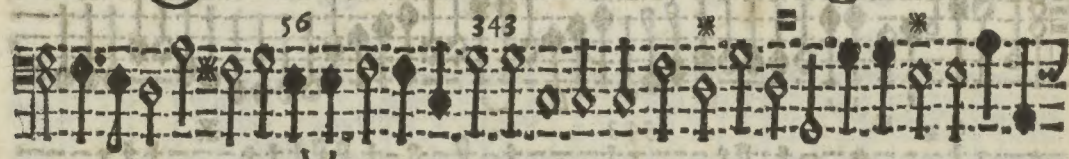 56 343